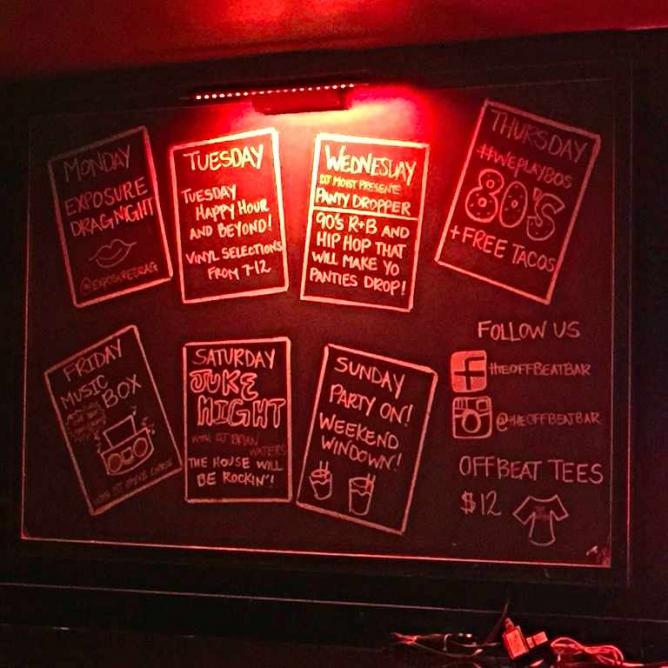 MONDAY
EXPOSURE
DRAG NIGHT
@EXPOSUREDRAG
TUESDAY
TUESDAY
HAPPY HOUR
AND BEYOND!
VINYL SELECTIONS
FROM 7-12
WEDNESDAY
DJ MOIST PRESENTS
PANTY DROPPER
90'S R+B AND
HIP HOP THAT
WILL MAKE YO
PANTIES DROP!
THURSDAY
#WEPLAY80S
80'S
+ FREE TACOS
FRIDAY
MUSIC
BOX
SATURDAY
JUKE
NIGHT
WITH DJ BRIAN
WATERS
THE HOUSE WILL
BE ROCKIN'!
SUNDAY
PARTY ON!
WEEKEND
WINDOWN!
FOLLOW US
f
#THEOFFBEATBAR
@THEOFFBEATBAR
OFFBEAT TEES
$12